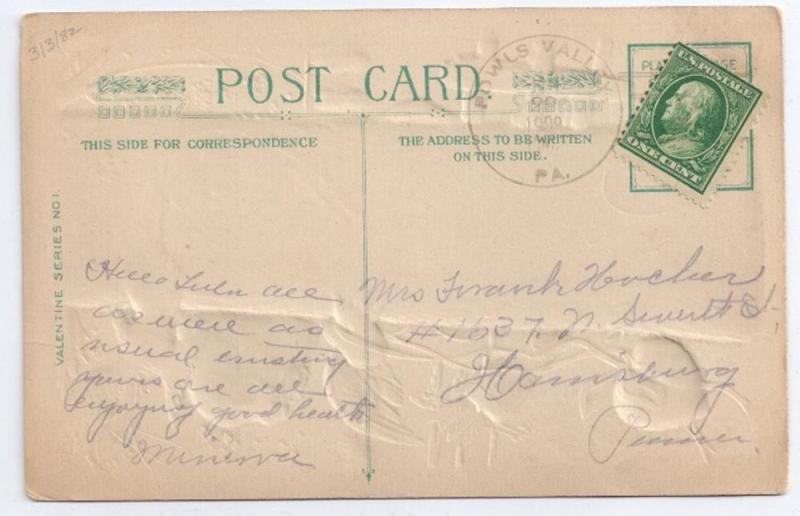 3/3/82
POST CARD.
POWLS VALLEY
1909
PA.
PLACE POSTAGE
U.S. POSTAGE
ONE CENT
THIS SIDE FOR CORRESPONDENCE
THE ADDRESS TO BE WRITTEN
ON THIS SIDE.
VALENTINE SERIES NO 1.
Hello Lulu all
are well as
usual trusting
yours are all
enjoying good health
Minerva
Mrs Frank Hocker
#1637 N. Seventh St.
Harrisburg
Penna.